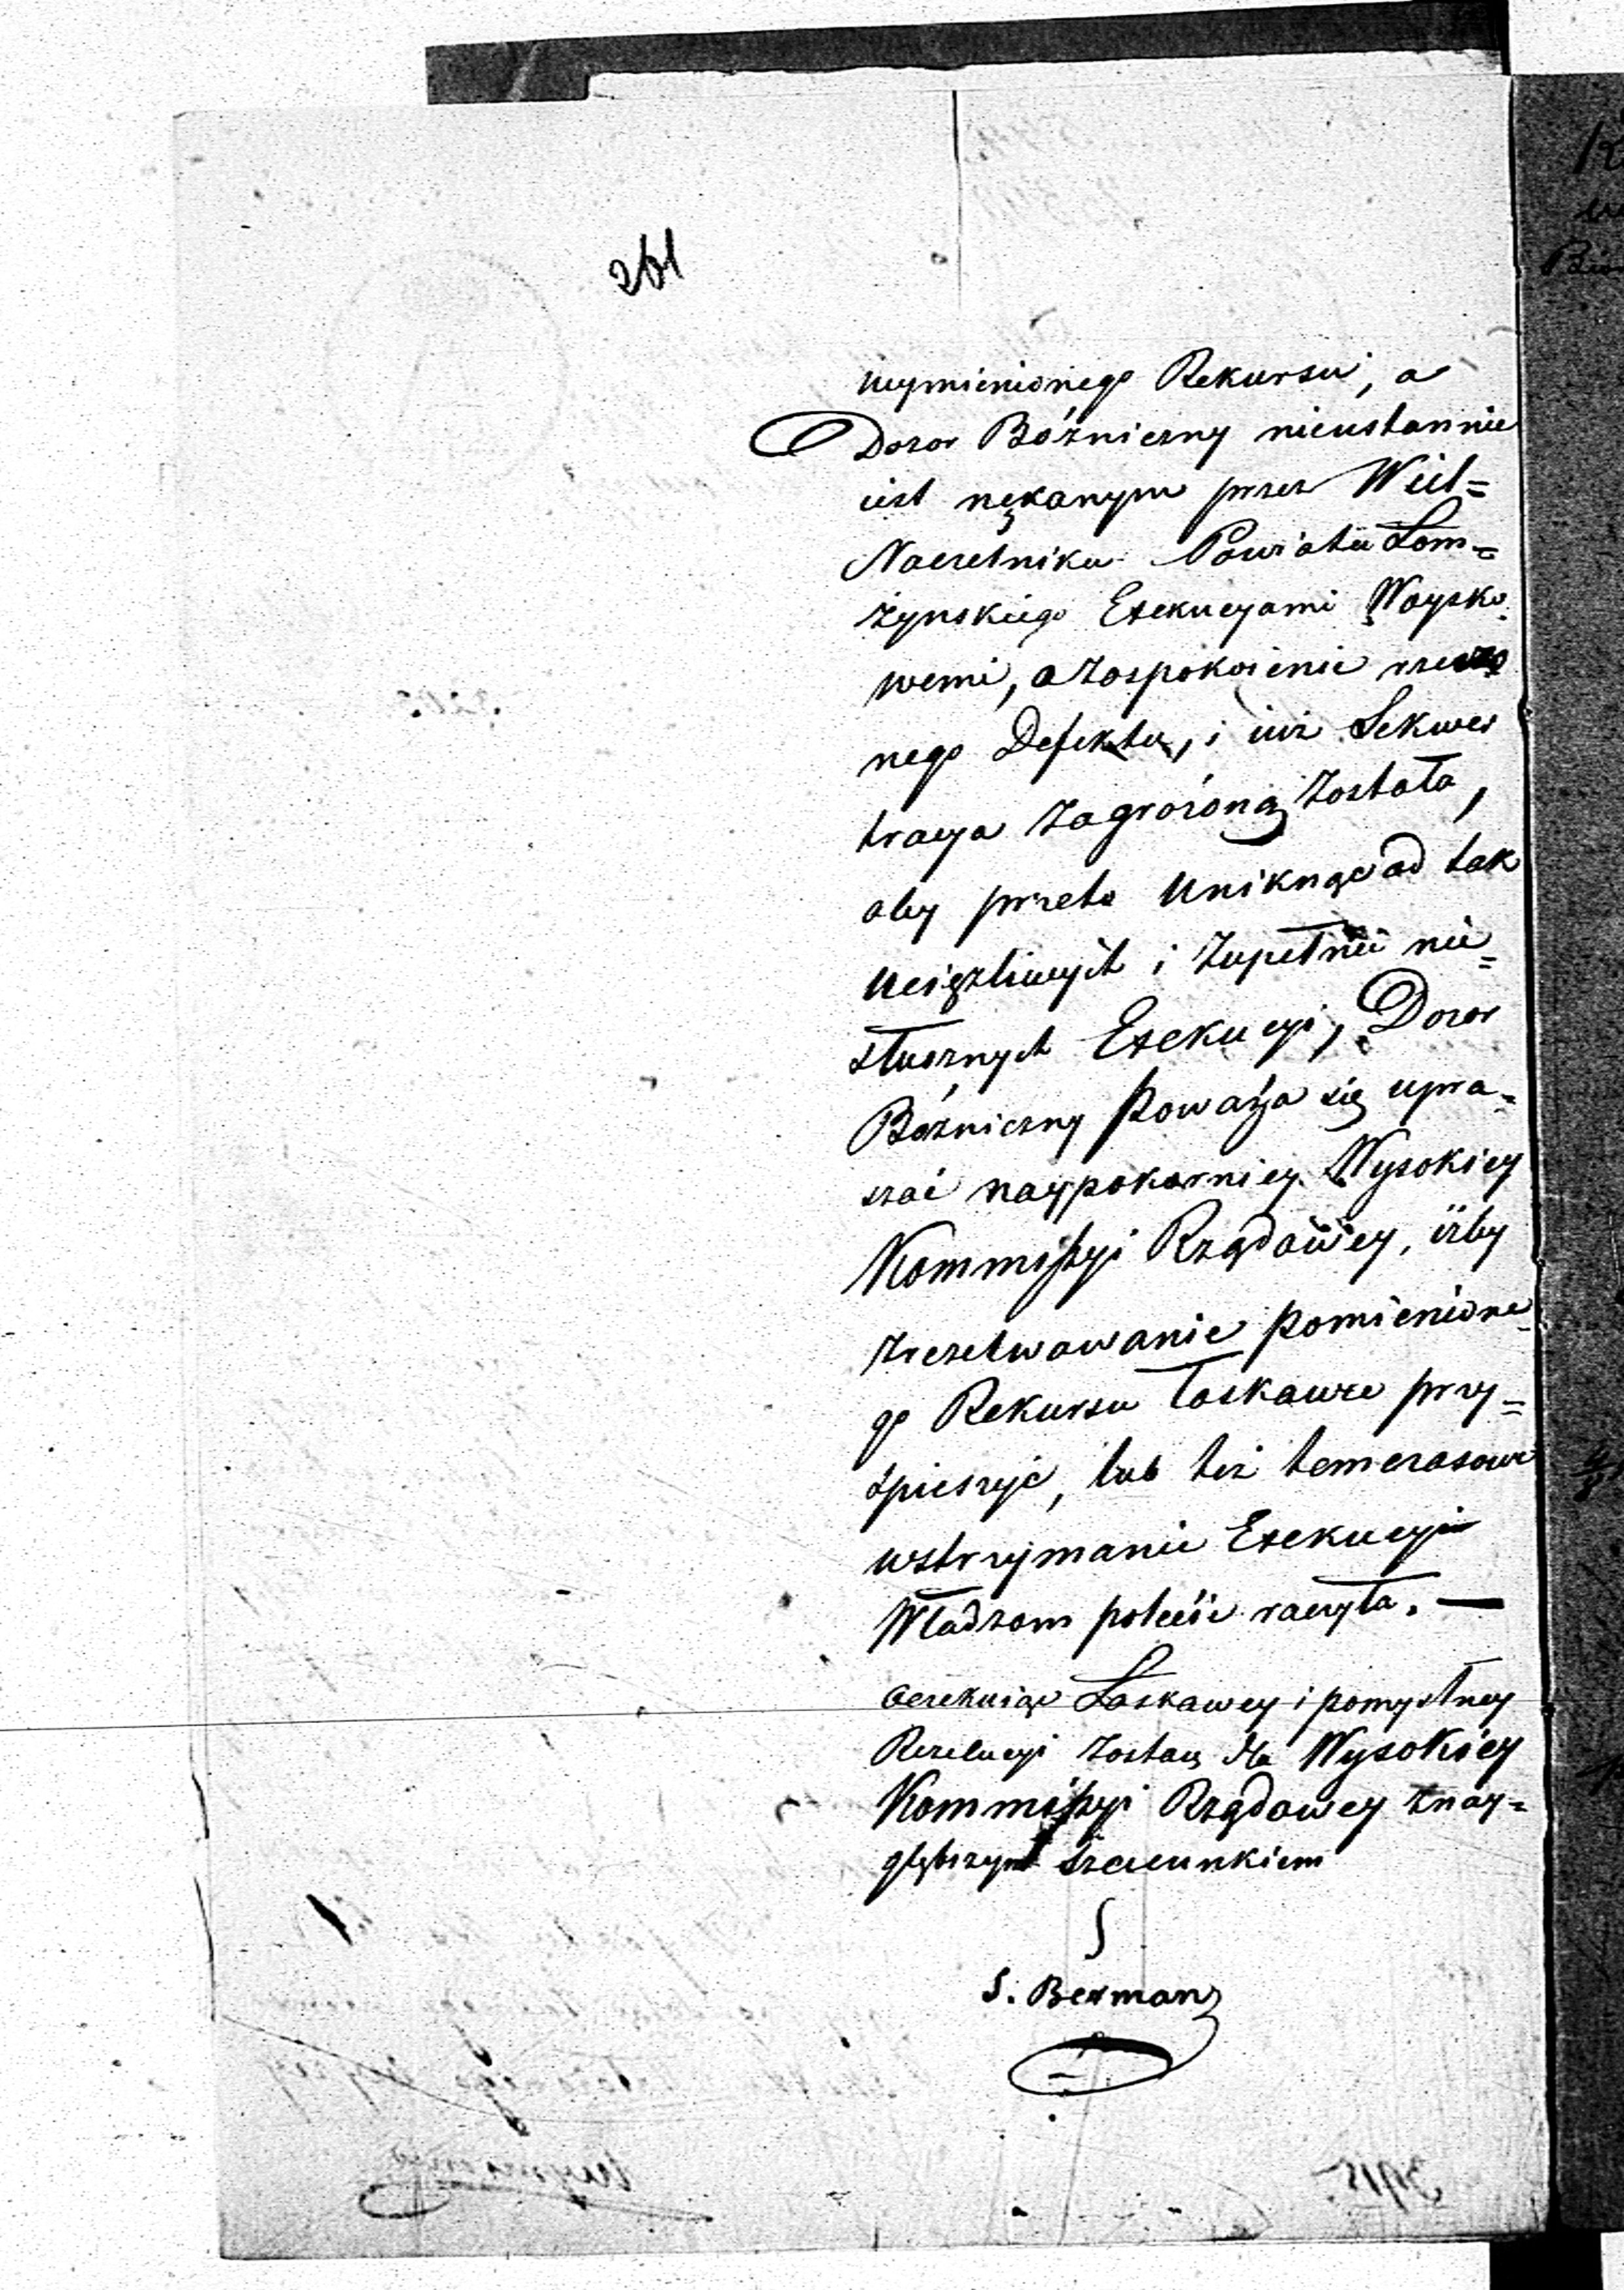 261
wymienionego Rekursu, a
Dozor Bóżniczny nieustannie
iest nękanym przez Wiel=
Naczelnika Powiatu Łom=
żynskiego Exekucyami Woysko
wemi, o zaspokoienie rzeczo
nego Defektu, i iuż Sekwes
tracya zagrożoną została,
aby przeto uniknąć od tak
uciążliwych i zupełnie nie=
słusznych Exekucyi, Dozor
Bóżniczny poważa się upra=
szać naypokorniey Wysokiey
Kommissyi Rządowey, iżby
zrezelwowanie pomienione
go Rekursu łaskawie przy=
śpieszyć, lub też tymczasowe
wstrzymanie Exekucyi
Władzom polecić raczyła. —
Oczekuiąc Łaskawey i pomyślney
Rezolucyi zostaię dla Wysokiey
Kommissyi Rządowey z nay=
głębszym szacunkiem
S. Berman